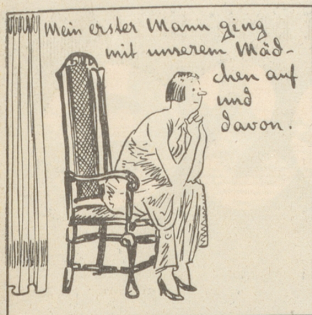 Mein erster Mann ging
mit unserem Mäd-
chen auf
und
davon.